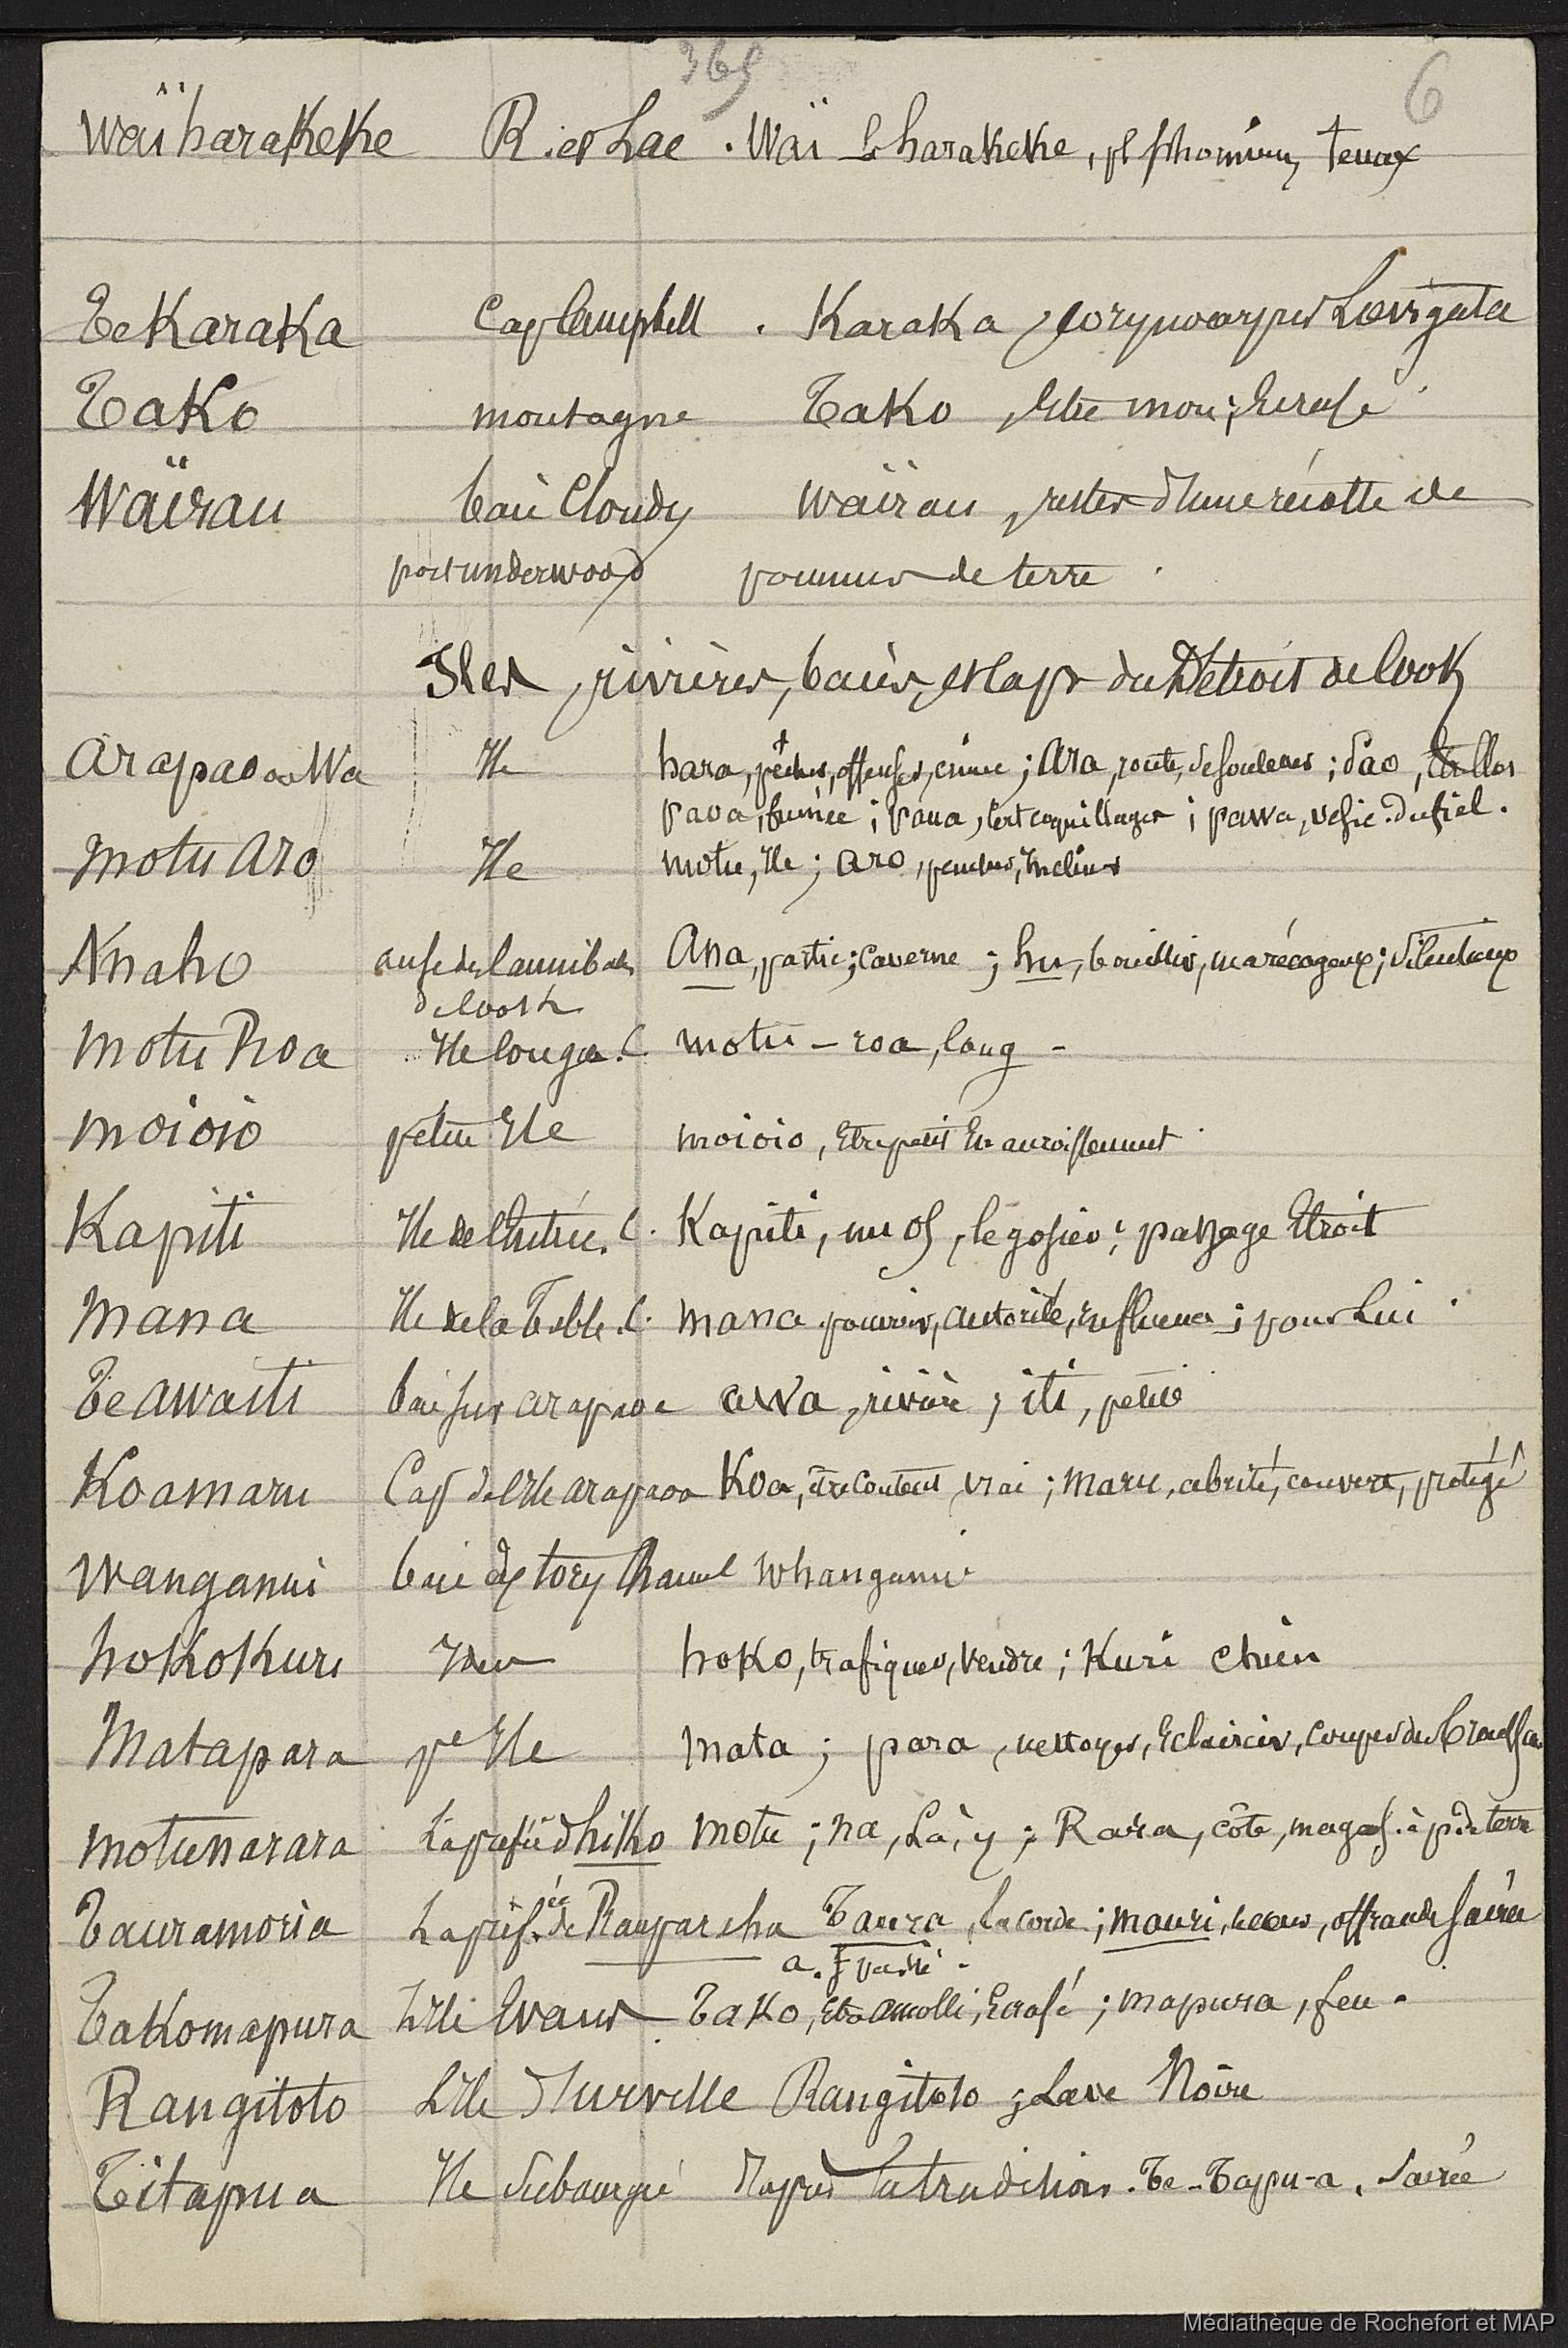 365 6
Waïharakeke R. et Lac . Waï & harakeke, pl phormium tenax
Te Karaka Cap Campbell . Karaka, Corynocarpus Lævigata
Tako montagne Tako, être mou; Ecrasé
Waïrau baie Cloudy Waïrau, restes d'une récolte de
port underwood pommes de terre .
Iles, rivières, baies, et Caps du Détroit de Cook
Arapaoa ou Wa Ile hara, péchés, offenses, crime; Ara, route, se soulever; Pao,
Paoa, fumée; Paua, coquillages; pawa, vésic. du fiel.
Motu Aro Ile motu, Ile; Aro, incliner
Anaho anse des Cannibales Ana, partie; Caverne; hu, bouillir, marécageux; silencieux
de Cook
Motu Roa Ile longue. C. motu - roa, long -
Moioio petite Ile moioio, Etre petit En accroissement
Kapiti Ile de l'Entrée. C. Kapiti, un os, le gosier; passage Etroit
Mana Ile de la Table. C. mana pouvoir, autorité, influence; pour Lui
Te Awaiti baie sur arapaoa awa, rivière; iti, petite
Koamaru Cap de l'Ile arapaoa Koa, être content, vrai; maru, abrité, couvert, protégé
Wanganui baie de tory Channel Whanganui
hokokuri Idem hoko, trafiquer, vendre; Kuri chien
Matapara pe Ile mata; para, nettoyer, Eclaircir, couper des broussailles
motunarara La presqu'île d'hiko motu; na, Là, y; Rara, côte, magas. à p. de terre
Tauramoria La presq. ée de Rauparaha Taura, la corde; mauri, offrande sacrée
a.
Takomapura L'Ile Evans Tako, Etre amolli, Ecrasé; mapura, feu.
Rangitoto L'Ile d'Urville Rangitoto; Lave Noire
Titapua Ile submergée d'après la tradition. Te-Tapu-a. Sacrée
Médiathèque de Rochefort et MAP